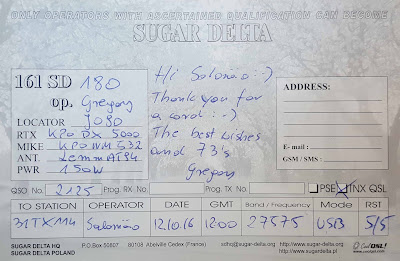 ONLY OPERATORS WITH ASCERTAINED QUALIFICATION CAN BECOME
SUGAR DELTA
161 SD 180
op. Gregory
LOCATOR JO90
RTX KPO DX 5000
MIKE KPO NM 532
ANT. Lemm AT84
PWR 150W
Hi Salomão :-)
Thank you for
a card :-)
The best wishes
and 73's
Gregory
ADDRESS:
E-mail :
GSM / SMS :
QSO No. 2125 Prog. RX No. Prog. TX No. PSE TNX QSL
TO STATION OPERATOR DATE GMT Band / Frequency Mode RST
31TX114 Salomão 12.10.16 1200 27575 USB 5/5
SUGAR DELTA HQ P.O.Box 50807 80108 Abelville Cedex (France) sdhq@sugar-delta.org http://www.sugar-delta.org
SUGAR DELTA POLAND http://www.sugardelta.pl
CoolQSL!
www.coolqsl.com